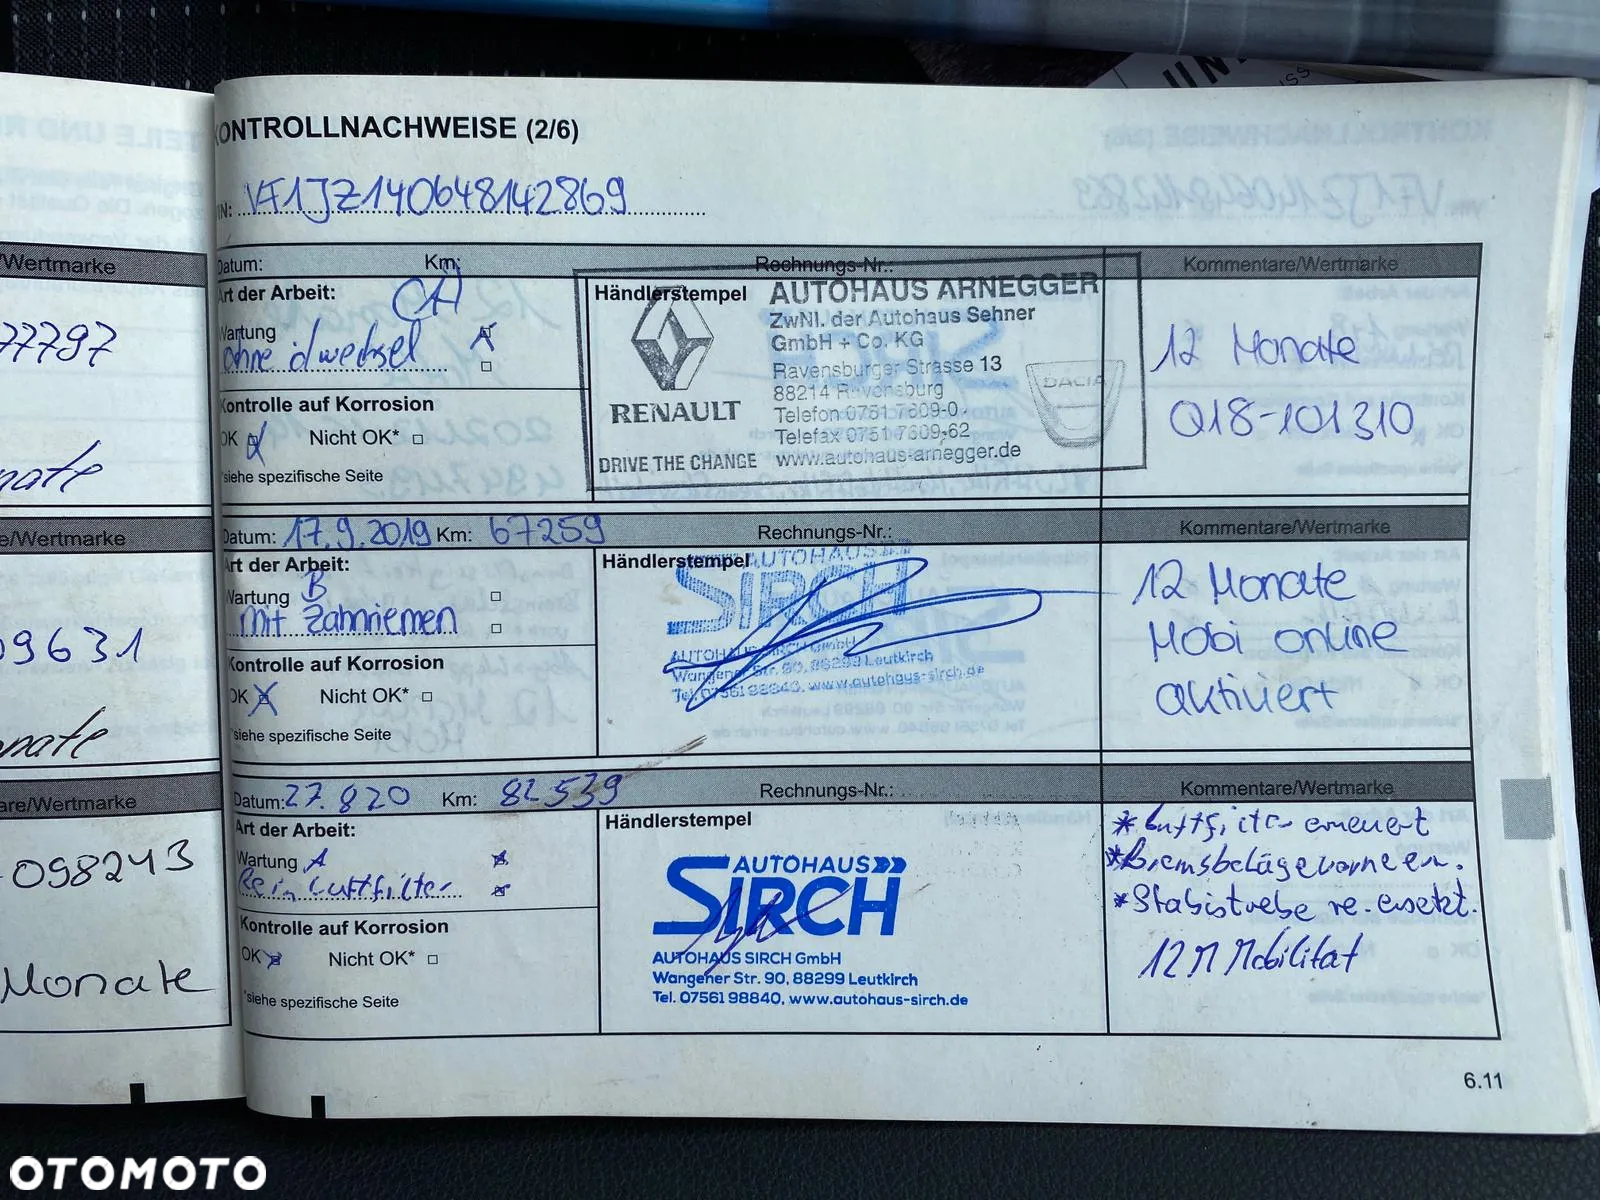 KONTROLLNACHWEISE (2/6)
VIN: VF1JZ140648142869
/Wertmarke
77797
nate
e/Wertmarke
09631
nate
are/Wertmarke
098243
Monate
Datum: Km: Rechnungs-Nr.: Kommentare/Wertmarke
Art der Arbeit:
Wartung
Ohne
Kontrolle auf Korrosion
OK Nicht OK*
*siehe spezifische Seite
Händlerstempel
AUTOHAUS ARNEGGER
ZwNl. der Autohaus Sehner
GmbH + Co. KG
Ravensburger Strasse 13
88214 Ravensburg
Telefon 0751 7609-0
Telefax 0751 7609-62
www.autohaus-arnegger.de
RENAULT
DRIVE THE CHANGE
DACIA
12 Monate
018-101310
Datum: 17.9.2019 Km: 67259 Rechnungs-Nr.: Kommentare/Wertmarke
Art der Arbeit:
Wartung B
Mit Zahnriemen
Kontrolle auf Korrosion
OK Nicht OK*
*siehe spezifische Seite
Händlerstempel
AUTOHAUS
SIRCH
AUTOHAUS SIRCH GmbH
Wangener Str. 90, 88299 Leutkirch
Tel. 07561 98840, www.autohaus-sirch.de
12 Monate
Mobi online
aktiviert
Datum: 27.820 Km: 82539 Rechnungs-Nr.: Kommentare/Wertmarke
Art der Arbeit:
Wartung A
Rein Luftfilter
Kontrolle auf Korrosion
OK Nicht OK*
*siehe spezifische Seite
Händlerstempel
AUTOHAUS
SIRCH
AUTOHAUS SIRCH GmbH
Wangener Str. 90, 88299 Leutkirch
Tel. 07561 98840, www.autohaus-sirch.de
* Luftfilter erneuert
* Bremsbeläge vorne ern.
* Stabistrebe re. ersetzt.
12 M Mobilität
6.11
OTOMOTO